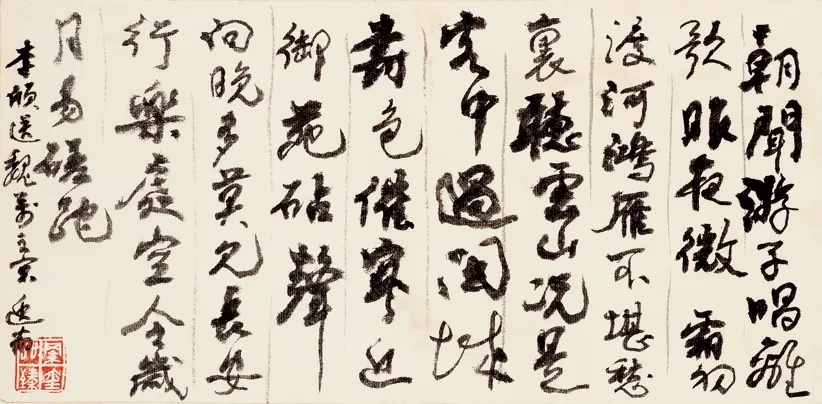 朝聞游子唱離
歌昨夜微霜初
渡河鴻雁不堪愁
裏聽雲山況是
客中過関城
樹色催寒近
御苑砧聲
向晚多莫見長安
行樂處空令歲
月易蹉跎
李頎送魏萬之京